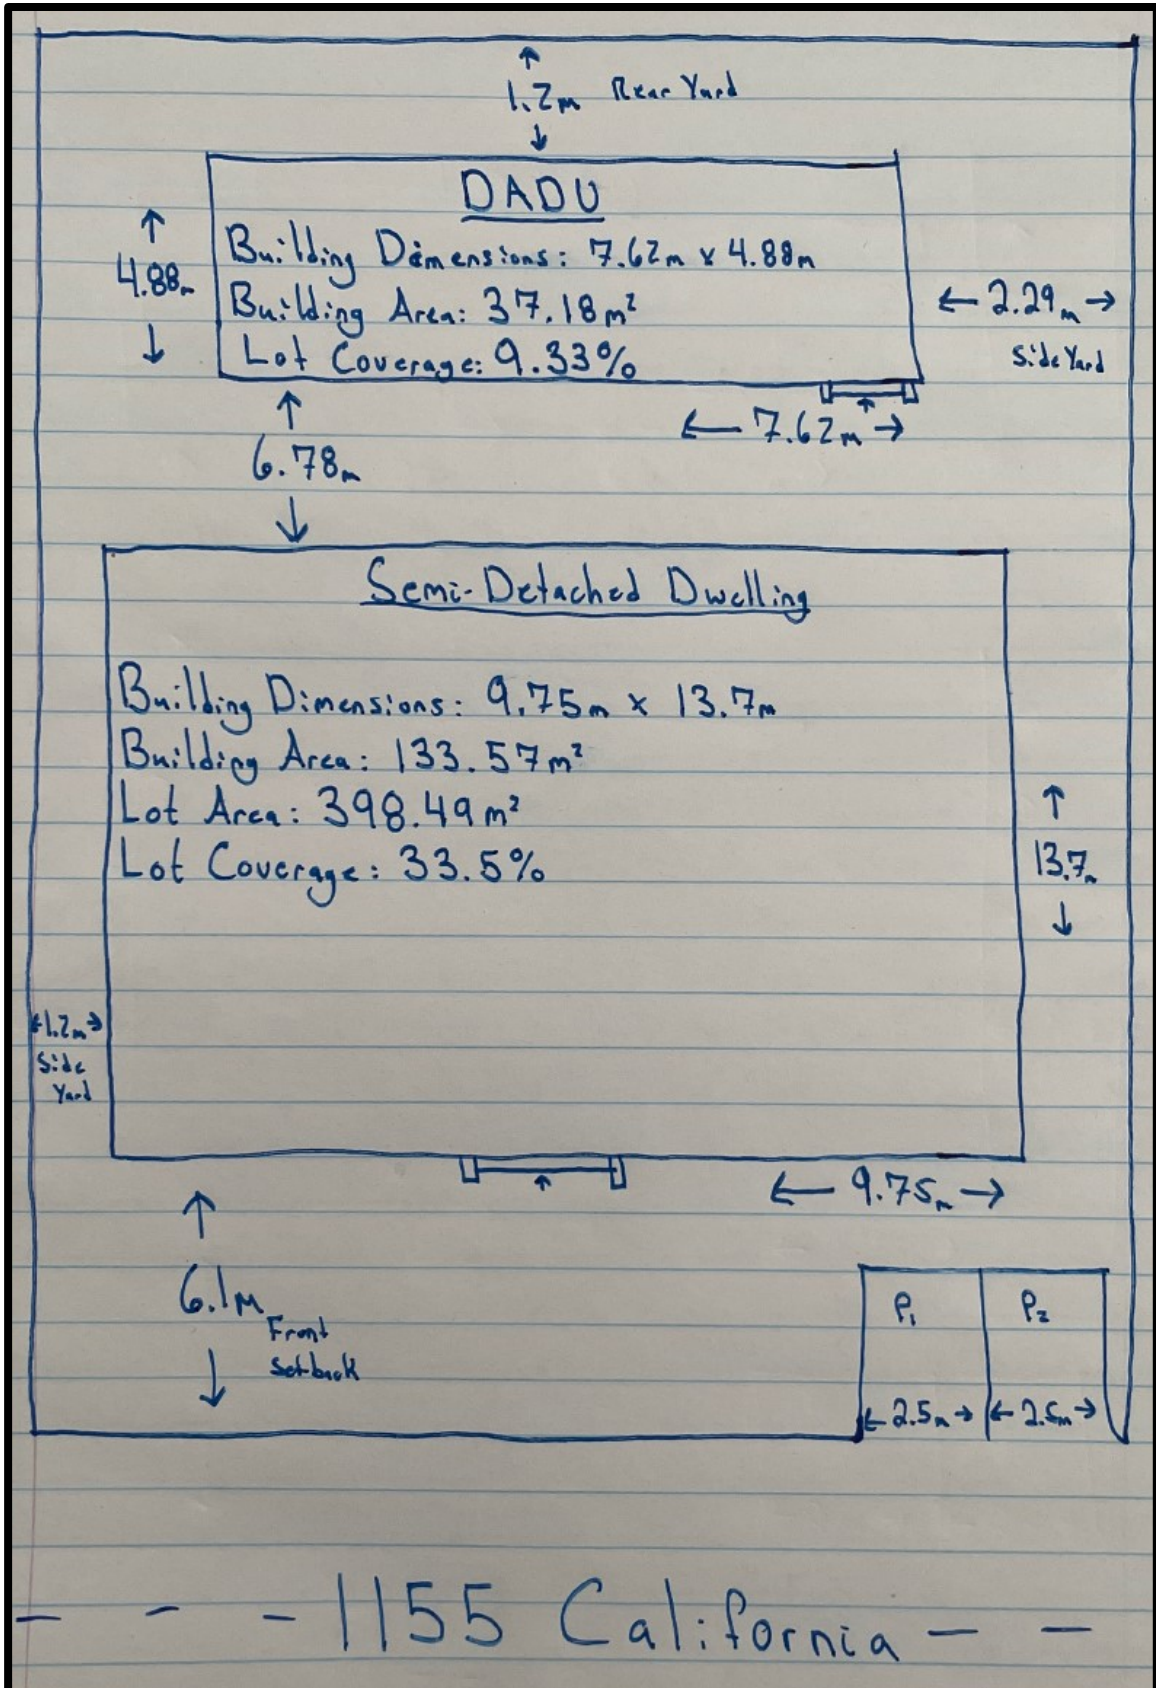 1.2m Rear Yard
DADU
Building Dimensions: 7.62m x 4.88m
4.88m
Building Area: 37.18m²
2.29m
Lot Coverage: 9.33%
Side Yard
7.62m
6.78m
Semi-Detached Dwelling
Building Dimensions: 9.75m x 13.7m
Building Area: 133.57m²
Lot Area: 398.49m²
Lot Coverage: 33.5%
13.7m
1.2m
Side
Yard
9.75m
6.1m
Front
Setback
P1
P2
2.5m
2.5m
1155 California